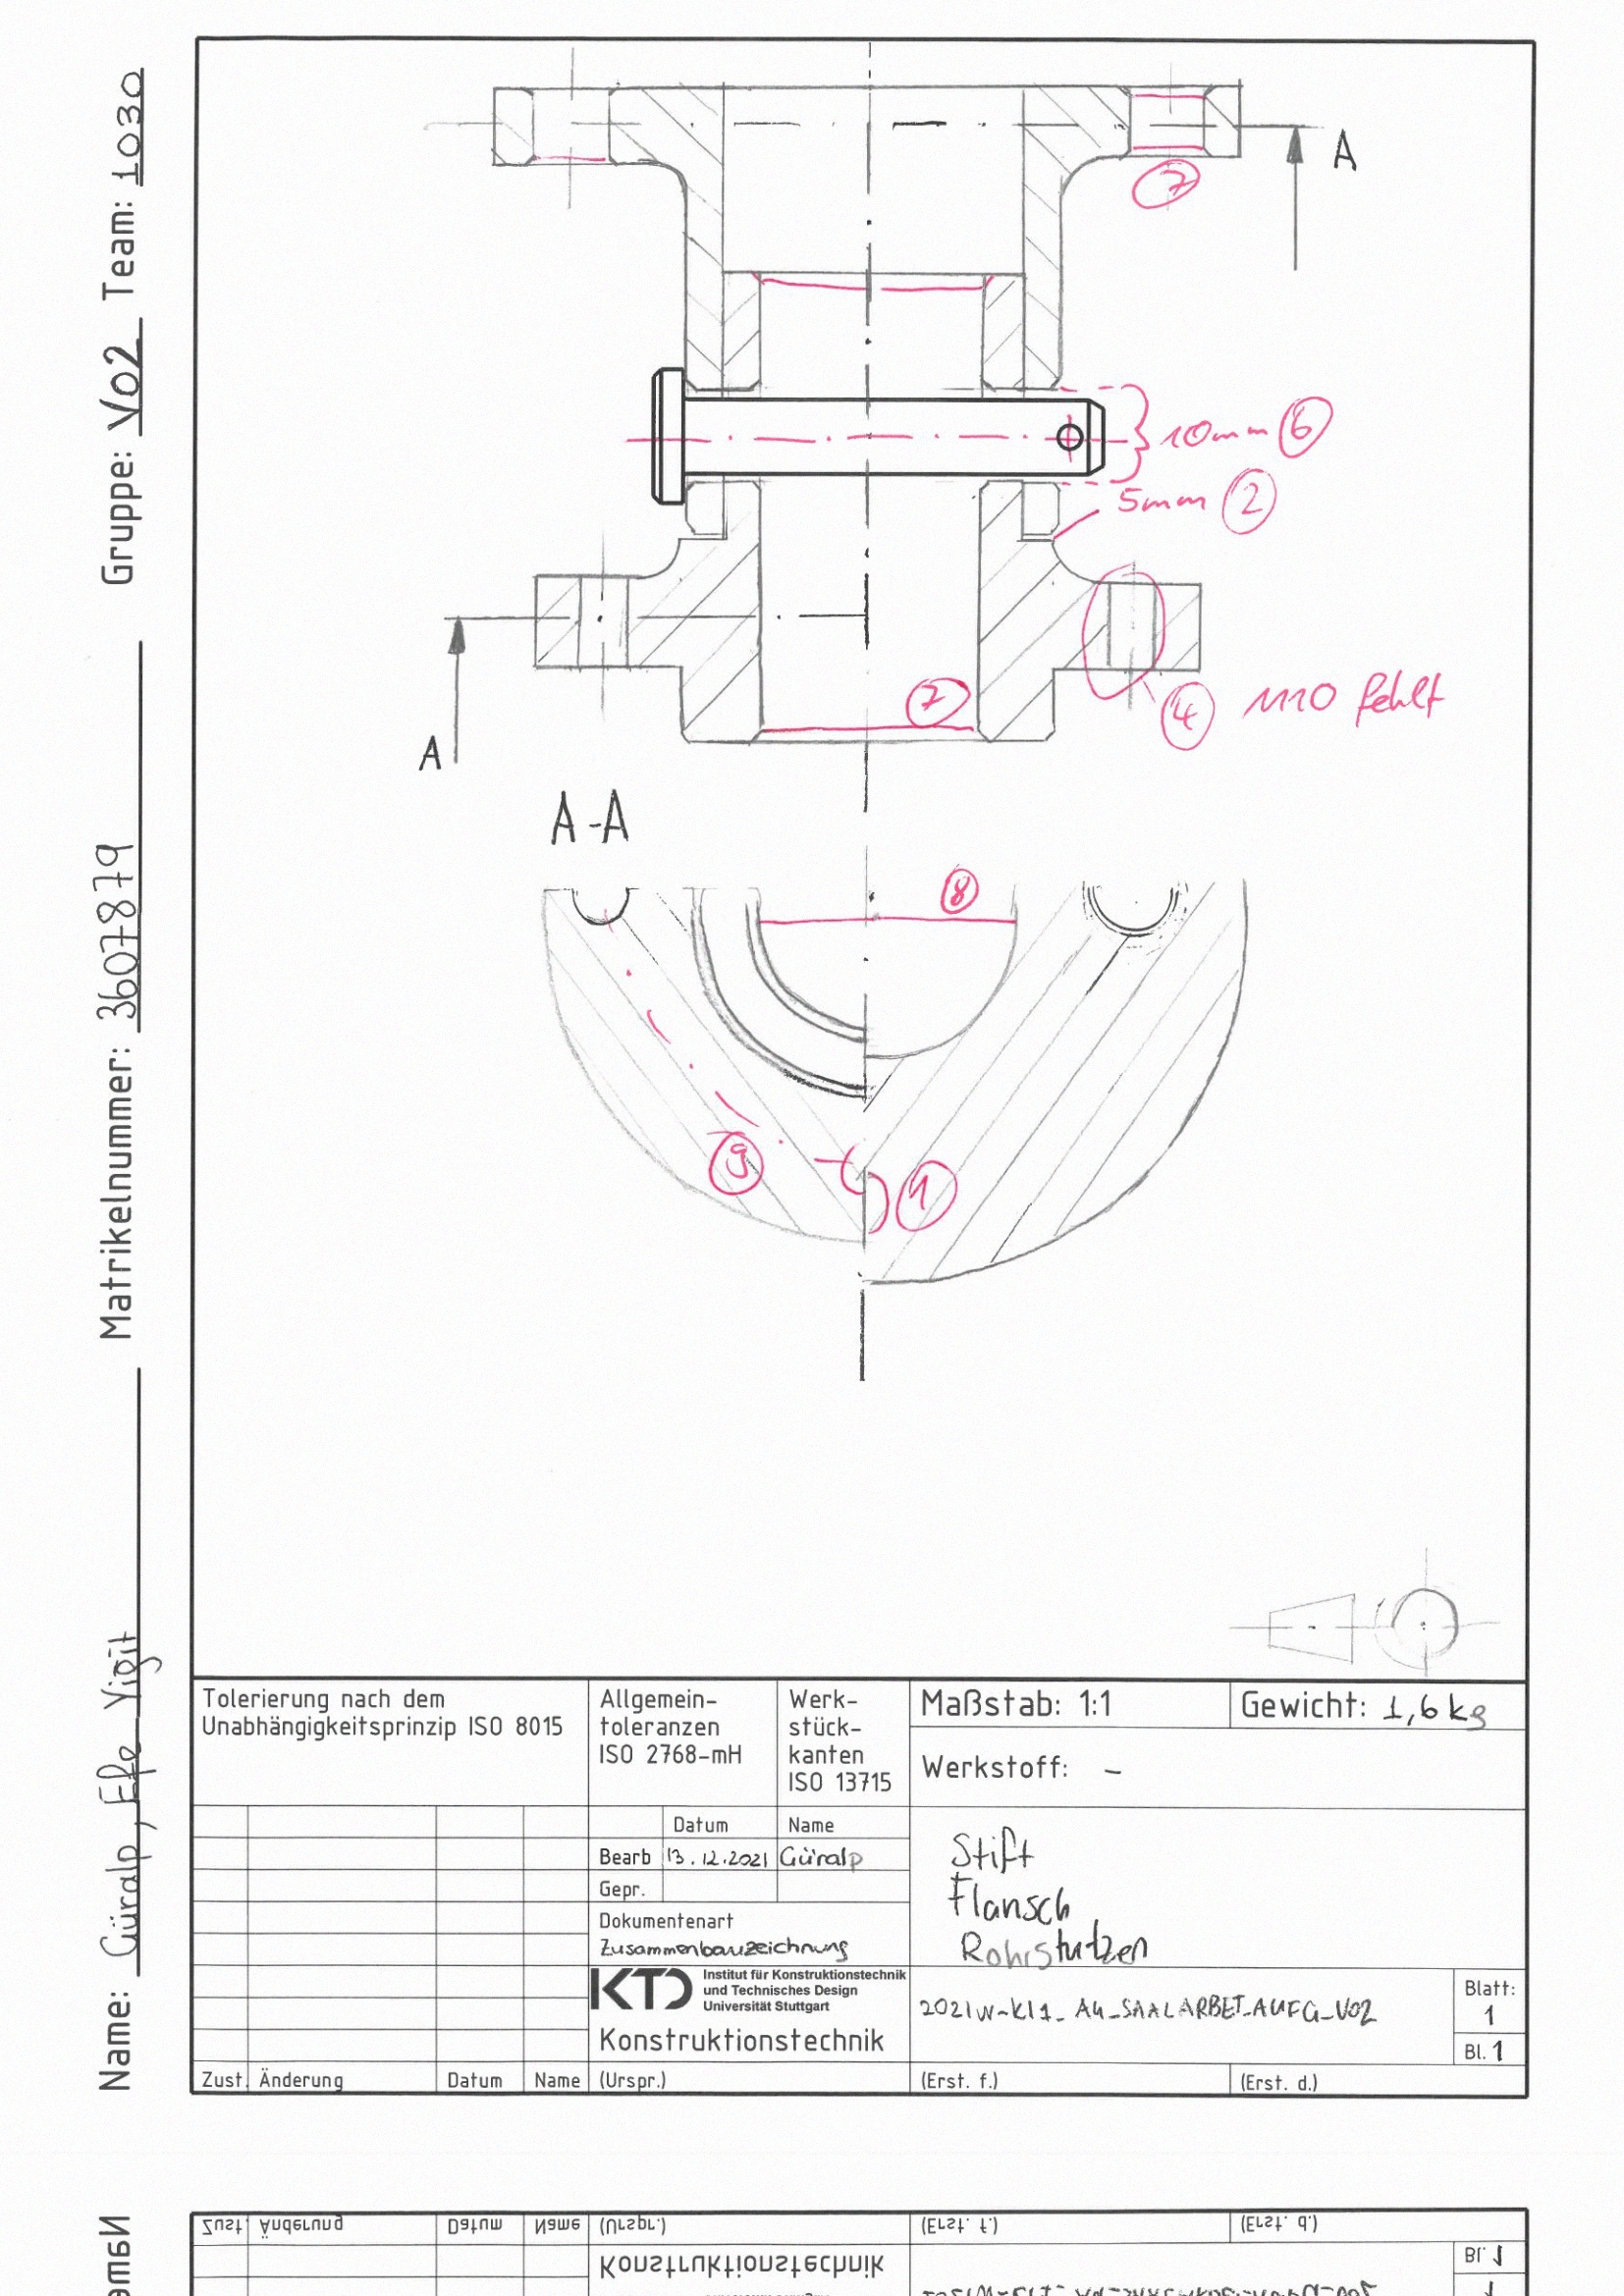 Name: Güralp, Efe Yigit Matrikelnummer: 3607879 Gruppe: V02 Team: 1030
A
7
10mm 6
5mm 2
7
4 1110 fehlt
A
A-A
8
9
1
Tolerierung nach dem
Unabhängigkeitsprinzip ISO 8015
Allgemein-
toleranzen
ISO 2768-mH
Werk-
stück-
kanten
ISO 13715
Maßstab: 1:1
Gewicht: 1,6 kg
Werkstoff: -
Datum Name
Bearb 13.12.2021 Güralp
Gepr.
Dokumentenart
Zusammenbauzeichnung
Stift
Flansch
Rohrstutzen
KTD Institut für Konstruktionstechnik
und Technisches Design
Universität Stuttgart
Konstruktionstechnik
2021W-KL1_A4_SAALARBET_AUFG_V02
Blatt:
1
Bl. 1
Zust. Änderung Datum Name (Urspr.) (Erst. f.) (Erst. d.)
Zust. Änderung Datum Name (Urspr.) (Erst. f.) (Erst. d.)
Konstruktionstechnik
Bl. 1
Name